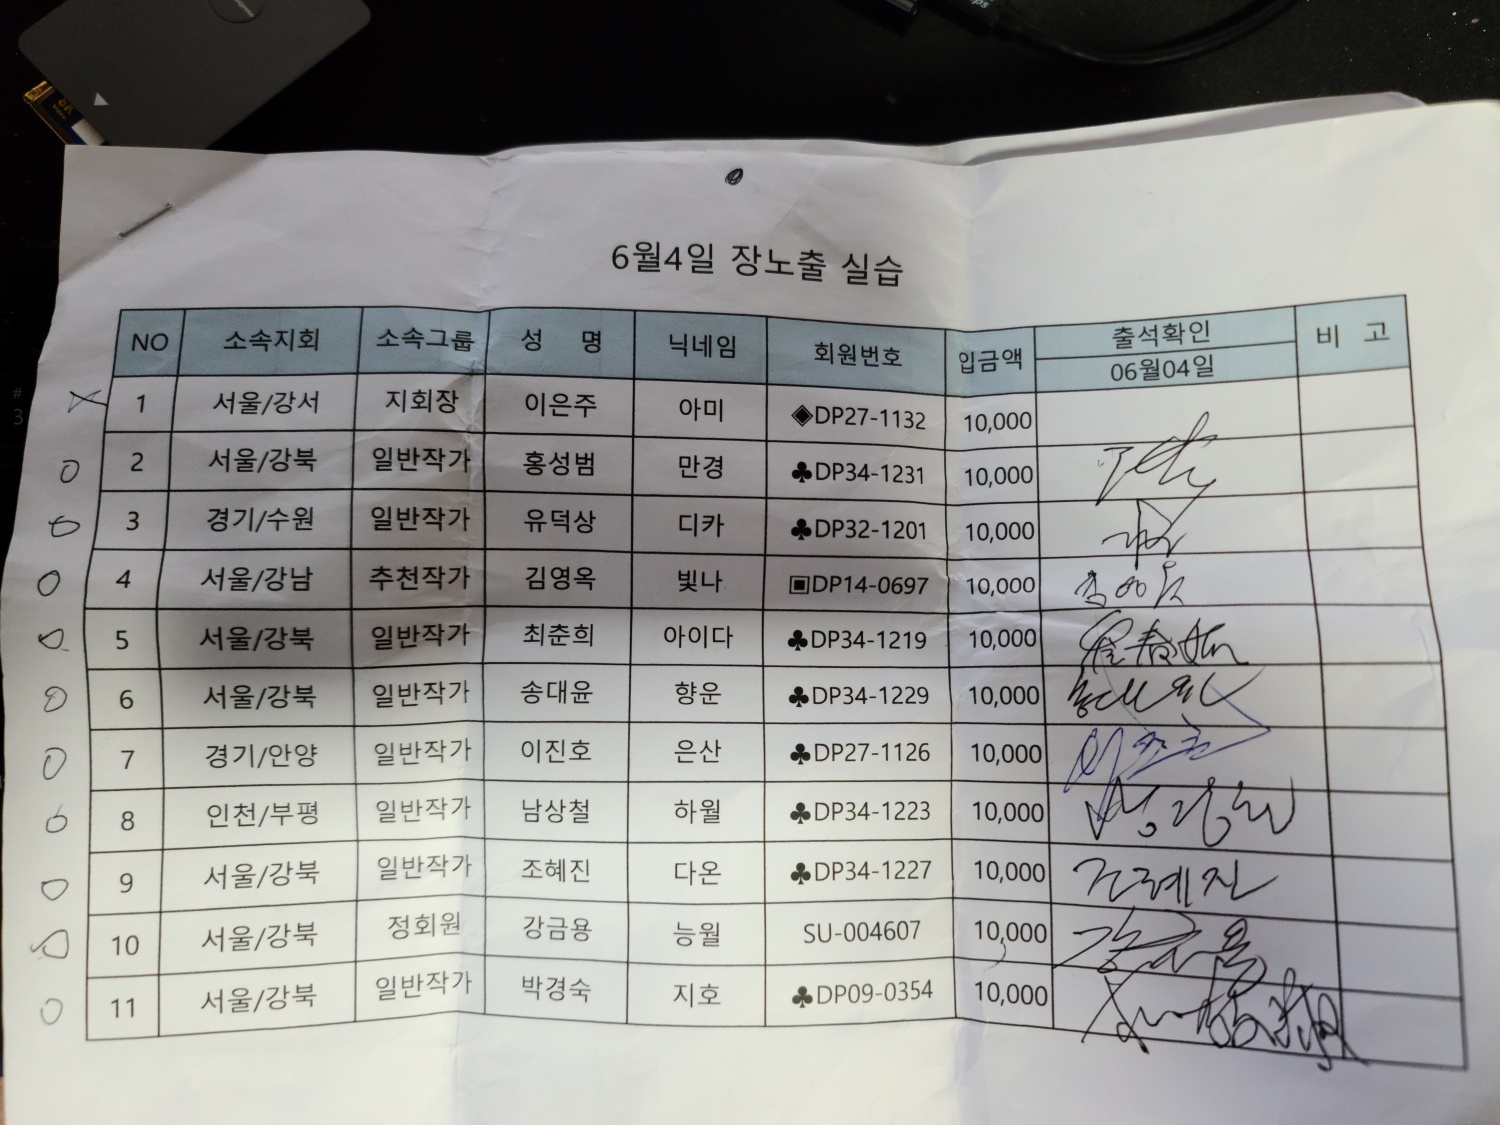 6월4일 장노출 실습
NO 소속지회 소속그룹 성 명 닉네임 회원번호 입금액 출석확인 비 고
06월04일
1 서울/강서 지회장 이은주 아미 ◈DP27-1132 10,000
2 서울/강북 일반작가 홍성범 만경 ♣DP34-1231 10,000
3 경기/수원 일반작가 유덕상 디카 ♣DP32-1201 10,000
4 서울/강남 추천작가 김영옥 빛나 ▣DP14-0697 10,000 김영옥
5 서울/강북 일반작가 최춘희 아이다 ♣DP34-1219 10,000
6 서울/강북 일반작가 송대윤 향운 ♣DP34-1229 10,000
7 경기/안양 일반작가 이진호 은산 ♣DP27-1126 10,000
8 인천/부평 일반작가 남상철 하월 ♣DP34-1223 10,000
9 서울/강북 일반작가 조혜진 다온 ♣DP34-1227 10,000 조혜진
10 서울/강북 정회원 강금용 능월 SU-004607 10,000 강금용
11 서울/강북 일반작가 박경숙 지호 ♣DP09-0354 10,000